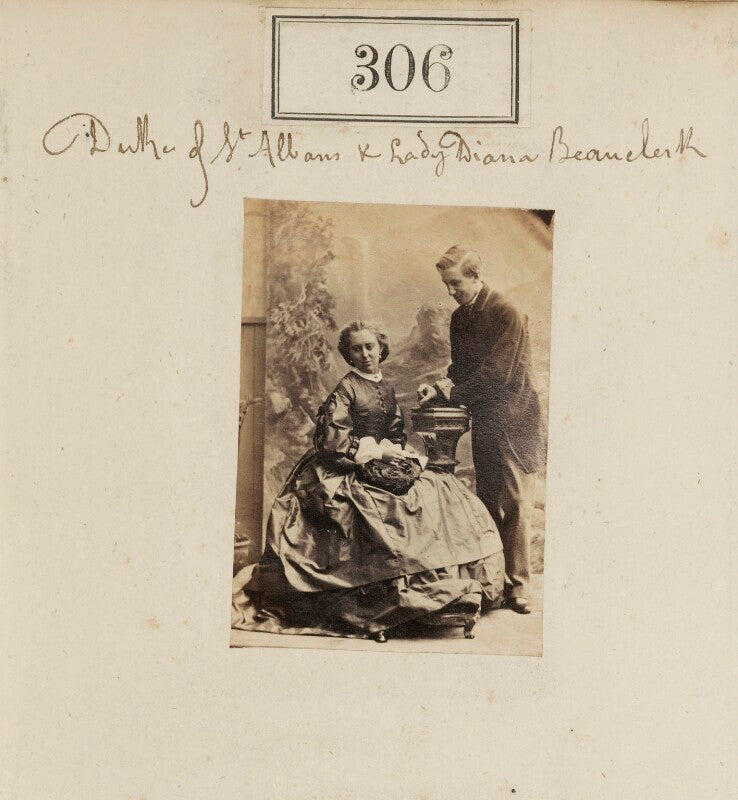 306
Duke of St Albans & Lady Diana Beauclerk